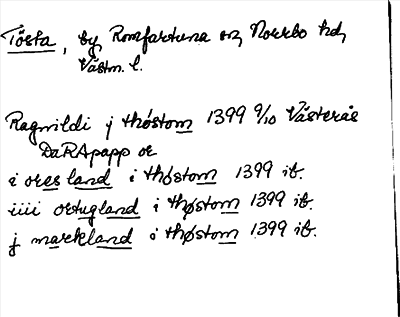 Tösta, by, Romfartuna sn, Norrbo hd,
Västm. l.
Ragnildi j thöstom 1399 9/10 Västerås
DaRApapp or
i øres land i thøstom 1399 ib.
iiii örtugland i thøstom 1399 ib.
j markland i thøstom 1399 ib.